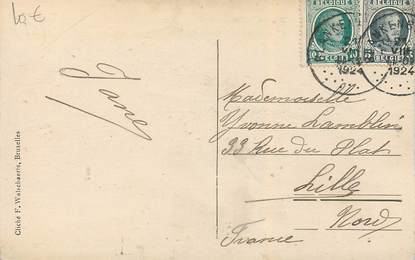 10€
BELGIQUE BELGIQUE
1924 1924
Jane
Mademoiselle
Yvonne Lamblin
33 Rue du Plat
Lille
Nord
France
Cliché F. Walschaerts, Bruxelles